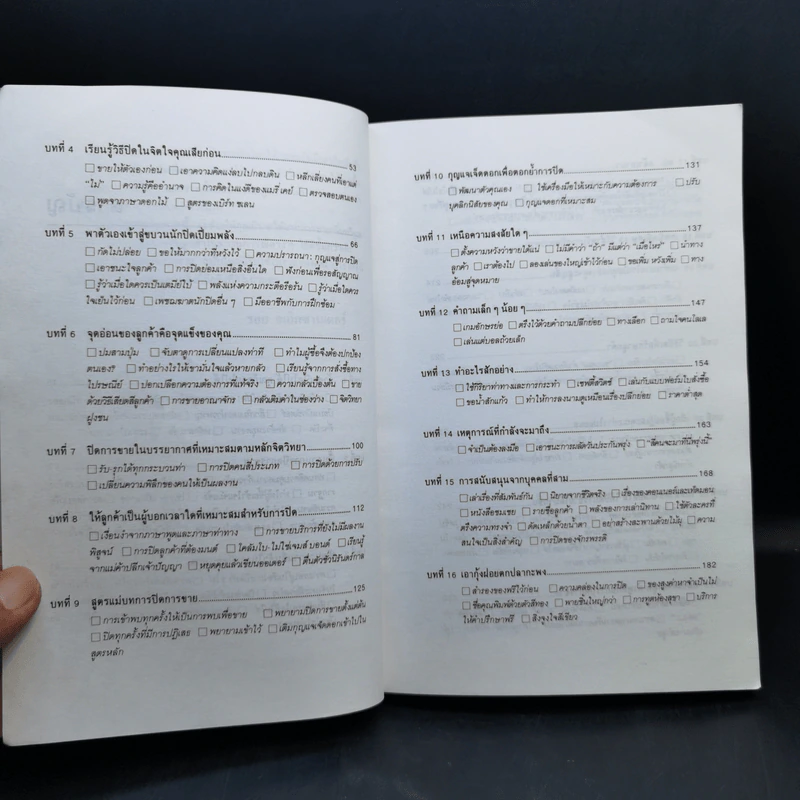 บทที่ 4 เรียนรู้วิธีปิดในจิตใจคุณเสียก่อน 53
☐ ขายให้ตัวเองก่อน ☐ เอาความคิดแง่ลบไปกลบดิน ☐ หลีกเลี่ยงคนที่เอาแต่
"ไม่" ☐ ความรู้คืออำนาจ ☐ การคิดในแง่ดีของแมรี่ เคย์ ☐ ตรวจสอบตนเอง
☐ พูดจาภาษาดอกไม้ ☐ สูตรของเบิร์ท ชเลน
บทที่ 5 พาตัวเองเข้าสู่ขบวนนักปิดเปี่ยมพลัง 66
☐ กัดไม่ปล่อย ☐ ขอให้มากกว่าที่หวังไว้ ☐ ความปรารถนา : กุญแจสู่การปิด
☐ เอาชนะใจลูกค้า ☐ การปิดย่อมเหนือสิ่งอื่นใด ☐ ฟังก่อนเพื่อรอสัญญาณ
☐ รู้ว่าเมื่อใดควรเป็นเตมีย์ใบ้ ☐ พลังแห่งความกระตือรือร้น ☐ รู้ว่าเมื่อใดควร
ใจเย็นไว้ก่อน ☐ เพชฌฆาตนักปิดอื่น ๆ ☐ มืออาชีพกับการฝึกซ้อม
บทที่ 6 จุดอ่อนของลูกค้าคือจุดแข็งของคุณ 81
☐ ปมสามปุ่ม ☐ จับตาดูการเปลี่ยนแปลงท่าที ☐ ทำไมผู้ซื้อจึงต้องปกป้อง
ตนเอง? ☐ ทำอย่างไรให้เขามั่นใจแล้วหายกลัว ☐ เรียนรู้จากการสั่งซื้อทาง
ไปรษณีย์ ☐ ปอกเปลือกความต้องการที่แท้จริง ☐ ความกลัวเบื้องต้น ☐ ขาย
ด้วยวิธีเสียดสีลูกค้า ☐ การขายอาณาจักร ☐ กลัวเติมคำในช่องว่าง ☐ จิตวิทยา
ฝูงชน
บทที่ 7 ปิดการขายในบรรยากาศที่เหมาะสมตามหลักจิตวิทยา 100
☐ รับ-รุกได้ทุกกระบวนท่า ☐ การปิดคนสี่ประเภท ☐ การปิดด้วยการปรับ
☐ เปลี่ยนความพิลึกของคนให้เป็นผลงาน
บทที่ 8 ให้ลูกค้าเป็นผู้บอกเวลาใดที่เหมาะสมสำหรับการปิด 112
☐ เงื่อนงำจากภาษาพูดและภาษาท่าทาง ☐ การขายบริการที่ยังไม่มีผลงาน
พิสูจน์ ☐ การปิดลูกค้าที่ต้องมนต์ ☐ โคลัมโบ-ไม่ใช่เจมส์ บอนด์ ☐ เรียนรู้
จากแม่ค้าปลีกเจ้าปัญญา ☐ หยุดคุยแล้วเขียนออเดอร์ ☐ ตื่นตัวชั่วนิรันดร์กาล
บทที่ 9 สูตรแม่บทการปิดการขาย 125
☐ การเข้าพบทุกครั้งให้เป็นการพบเพื่อขาย ☐ พยายามปิดการขายตั้งแต่ต้น
☐ ปิดทุกครั้งที่มีการปฏิเสธ ☐ พยายามเข้าไว้ ☐ เติมกุญแจเจ็ดดอกเข้าไปใน
สูตรหลัก
บทที่ 10 กุญแจเจ็ดดอกเพื่อตอกย้ำการปิด 131
☐ พัฒนาตัวคุณเอง ☐ ใช้เครื่องมือให้เหมาะกับความต้องการ ☐ ปรับ
บุคลิกนิสัยของคุณ ☐ กุญแจดอกที่เหมาะสม
บทที่ 11 เหนือความสงสัยใด ๆ 137
☐ ตั้งความหวังว่าขายได้แน่ ☐ ไม่มีคำว่า "ถ้า" มีแต่ว่า "เมื่อไหร่" ☐ นำทาง
ลูกค้า ☐ เราต้องไป ☐ ลองเล่นของใหญ่เข้าไว้ก่อน ☐ ขอเพิ่ม หวังเพิ่ม ☐ ทาง
อ้อมสู่จุดหมาย
บทที่ 12 คำถามเล็ก ๆ น้อย ๆ 147
☐ เกมอักษรย่อ ☐ ตรึงไว้ด้วยคำถามปลีกย่อย ☐ ทางเลือก ☐ ถามใจคนโลเล
☐ เล่นแต่บอลถ้วยเล็ก
บทที่ 13 ทำอะไรสักอย่าง 154
☐ ใช้กิริยาท่าทางและการกระทำ ☐ เซฟตี้สวิตช์ ☐ เล่นกับแบบฟอร์มใบสั่งซื้อ
☐ ขอน้ำสักแก้ว ☐ ทำให้การลงนามดูเหมือนเรื่องปลีกย่อย ☐ ราคาต่ำสุด
บทที่ 14 เหตุการณ์ที่กำลังจะมาถึง 163
☐ จำเป็นต้องลงมือ ☐ เอาชนะการผลัดวันประกันพรุ่ง ☐ "ลี้คนจะมาที่นี่พรุ่งนี้"
บทที่ 15 การสนับสนุนจากบุคคลที่สาม 168
☐ เล่าเรื่องที่สัมพันธ์กัน ☐ นิยายจากชีวิตจริง ☐ เรื่องของคอนเนอร์และเทิดมอน
☐ หนังสือชมเชย ☐ รายชื่อลูกค้า ☐ พลังของการเล่านิทาน ☐ ใช้ตัวละครที่
ตรึงความทรงจำ ☐ ตัดเหล็กด้วยน้ำตา ☐ อย่าสร้างสะพานด้วยไม้ผุ ☐ ความ
สนใจเป็นสิ่งสำคัญ ☐ การปิดของจักรพรรดิ
บทที่ 16 เอากุ้งฝอยตกปลากะพง 182
☐ สำรองของฟรีไว้ก่อน ☐ ความคล่องในการปิด ☐ ของสูงค่าหาจำเป็นไม่
☐ ชื่อคุณพิมพ์ด้วยตัวสีทอง ☐ พายชิ้นใหญ่กว่า ☐ การทูตห้องสุขา ☐ บริการ
ให้คำปรึกษาฟรี ☐ สิ่งจูงใจสีเขียว